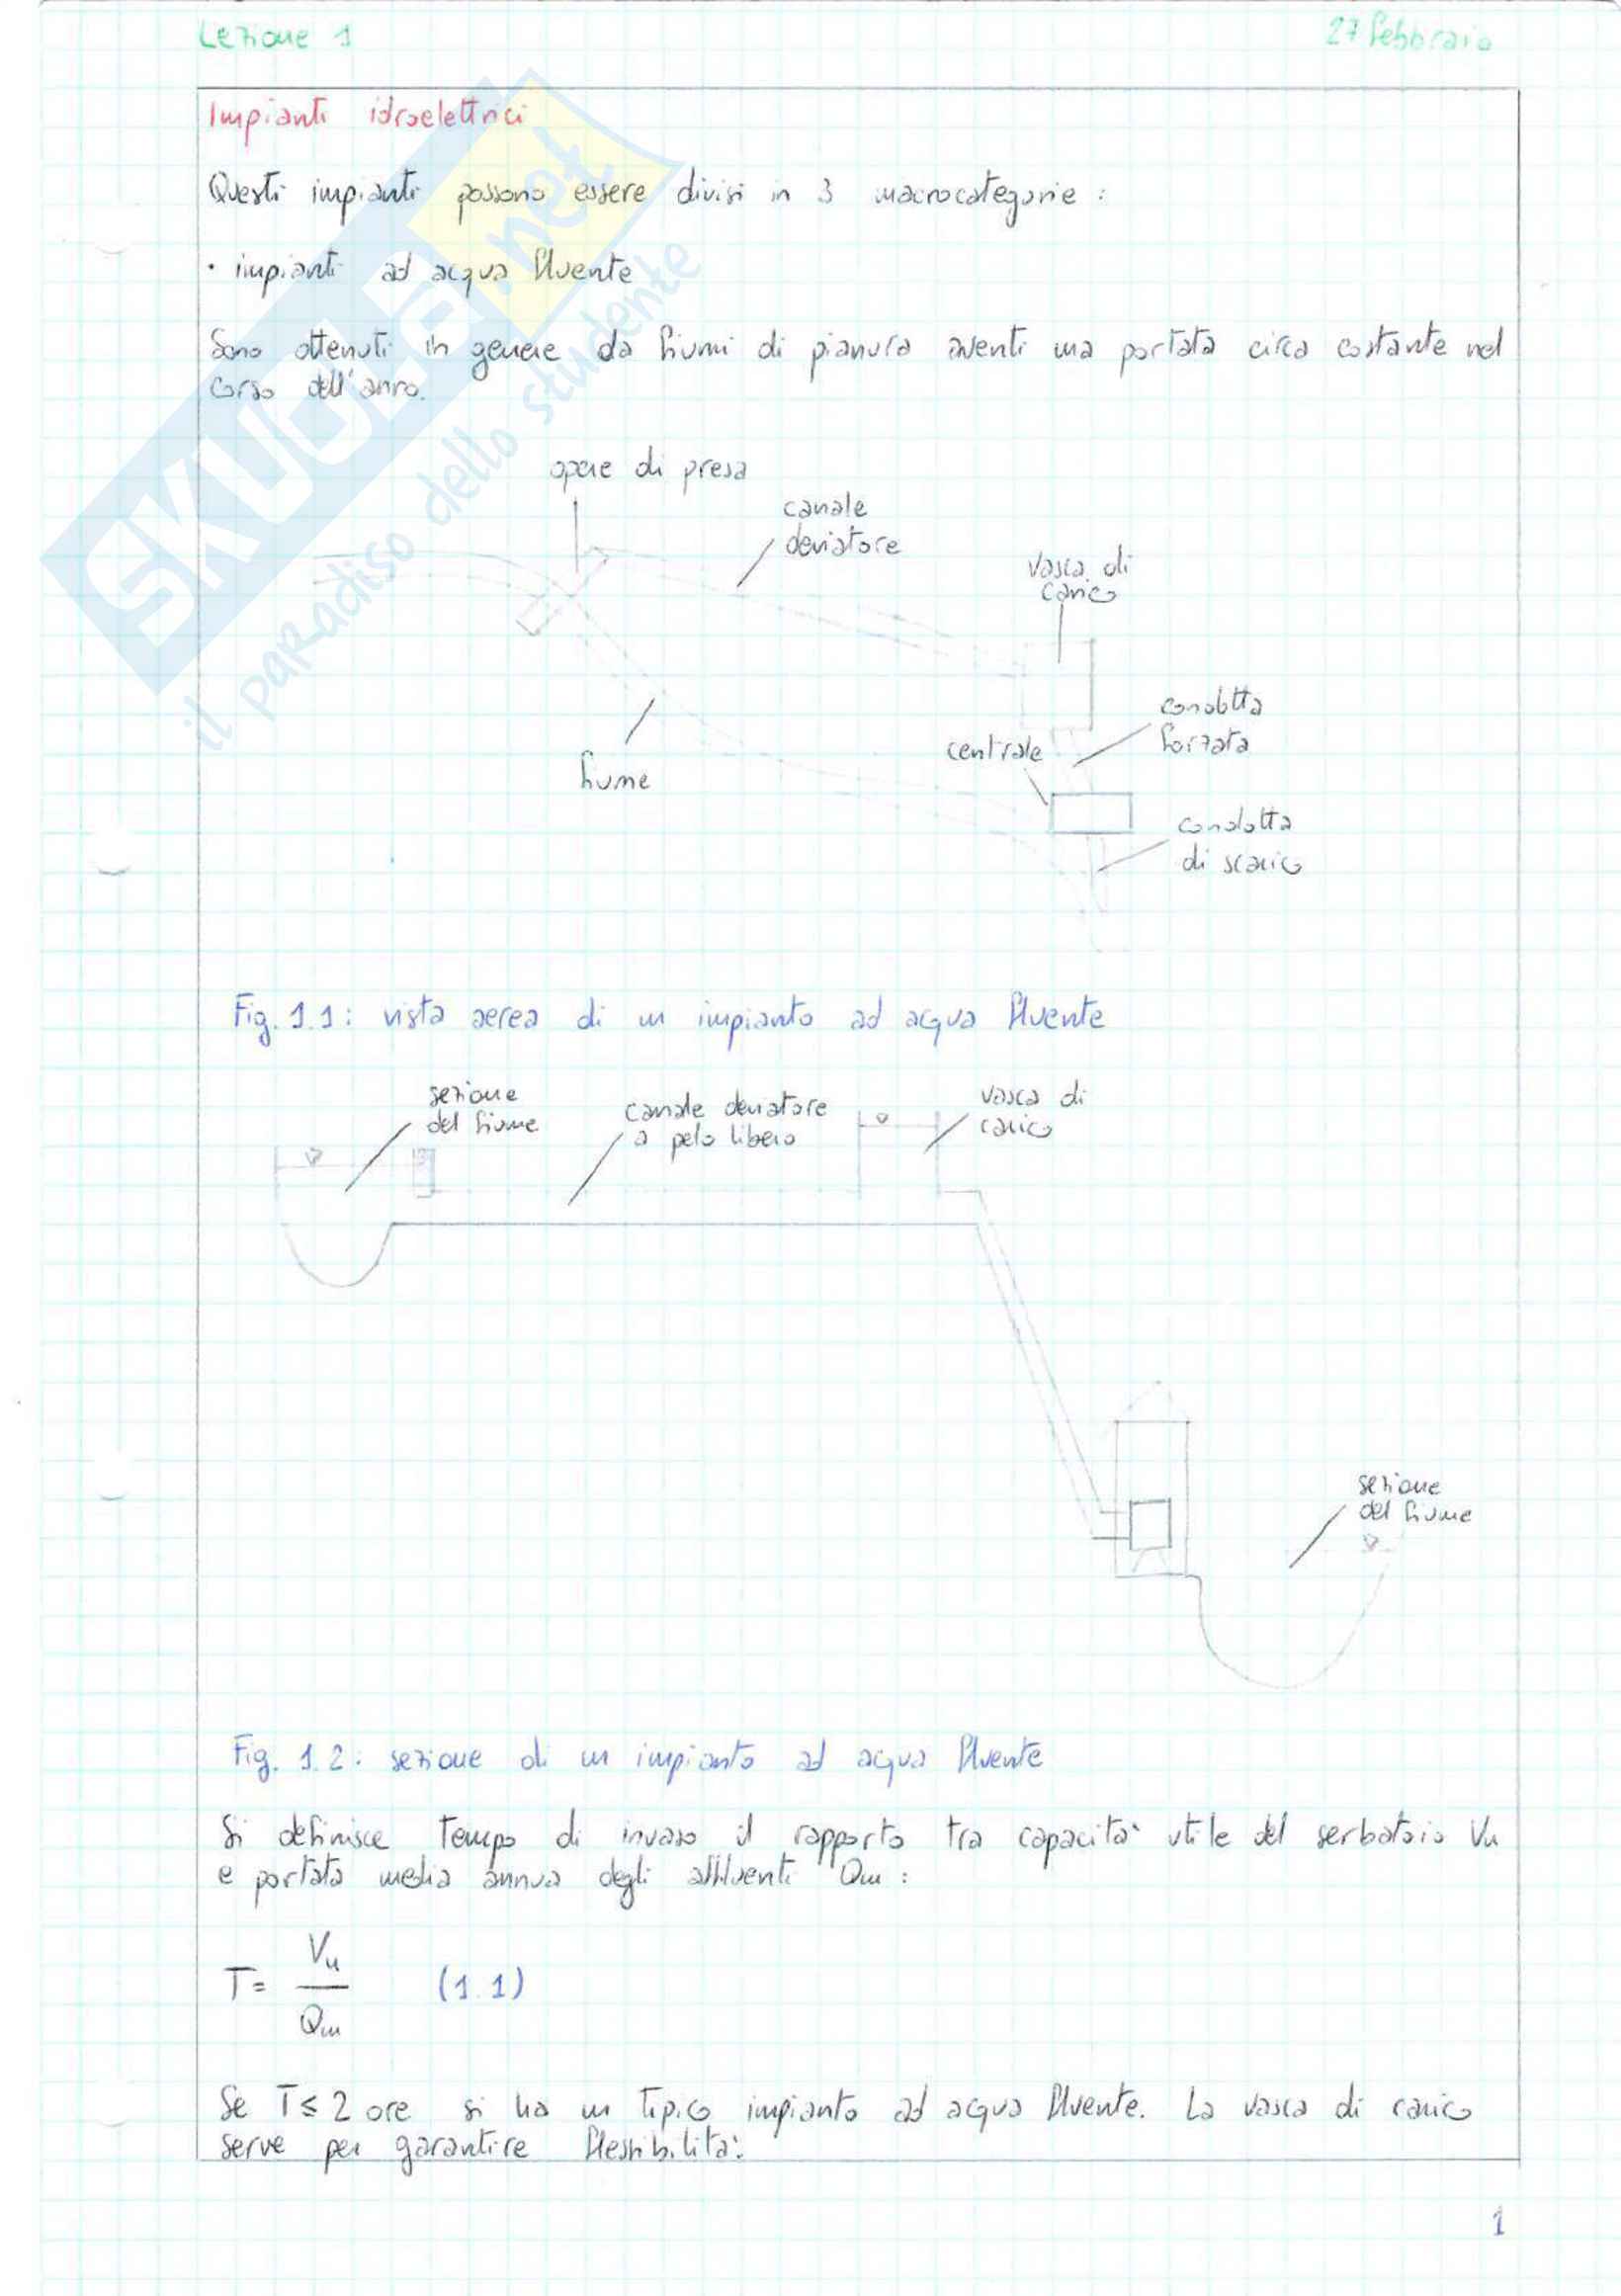 Lezione 1
27 febbraio
Impianti idroelettrici
Questi impianti possono essere divisi in 3 macrocategorie :
• impianti ad acqua fluente
Sono ottenuti in genere da fiumi di pianura aventi una portata circa costante nel
corso dell'anno.
opere di presa
canale
deviatore
vasca di
carico
condotta
forzata
centrale
fiume
condotta
di scarico
Fig. 1.1 : vista aerea di un impianto ad acqua fluente
sezione
del fiume
canale deviatore
a pelo libero
vasca di
carico
sezione
del fiume
Fig. 1.2 : sezione di un impianto ad acqua fluente
Si definisce tempo di invaso il rapporto tra capacità utile del serbatoio Vu
e portata media annua degli affluenti Qm :
T = Vu / Qm (1.1)
Se T ≤ 2 ore si ha un tipico impianto ad acqua fluente. La vasca di carico
serve per garantire flessibilità.
1
SKUOLA.net
il paradiso dello studente